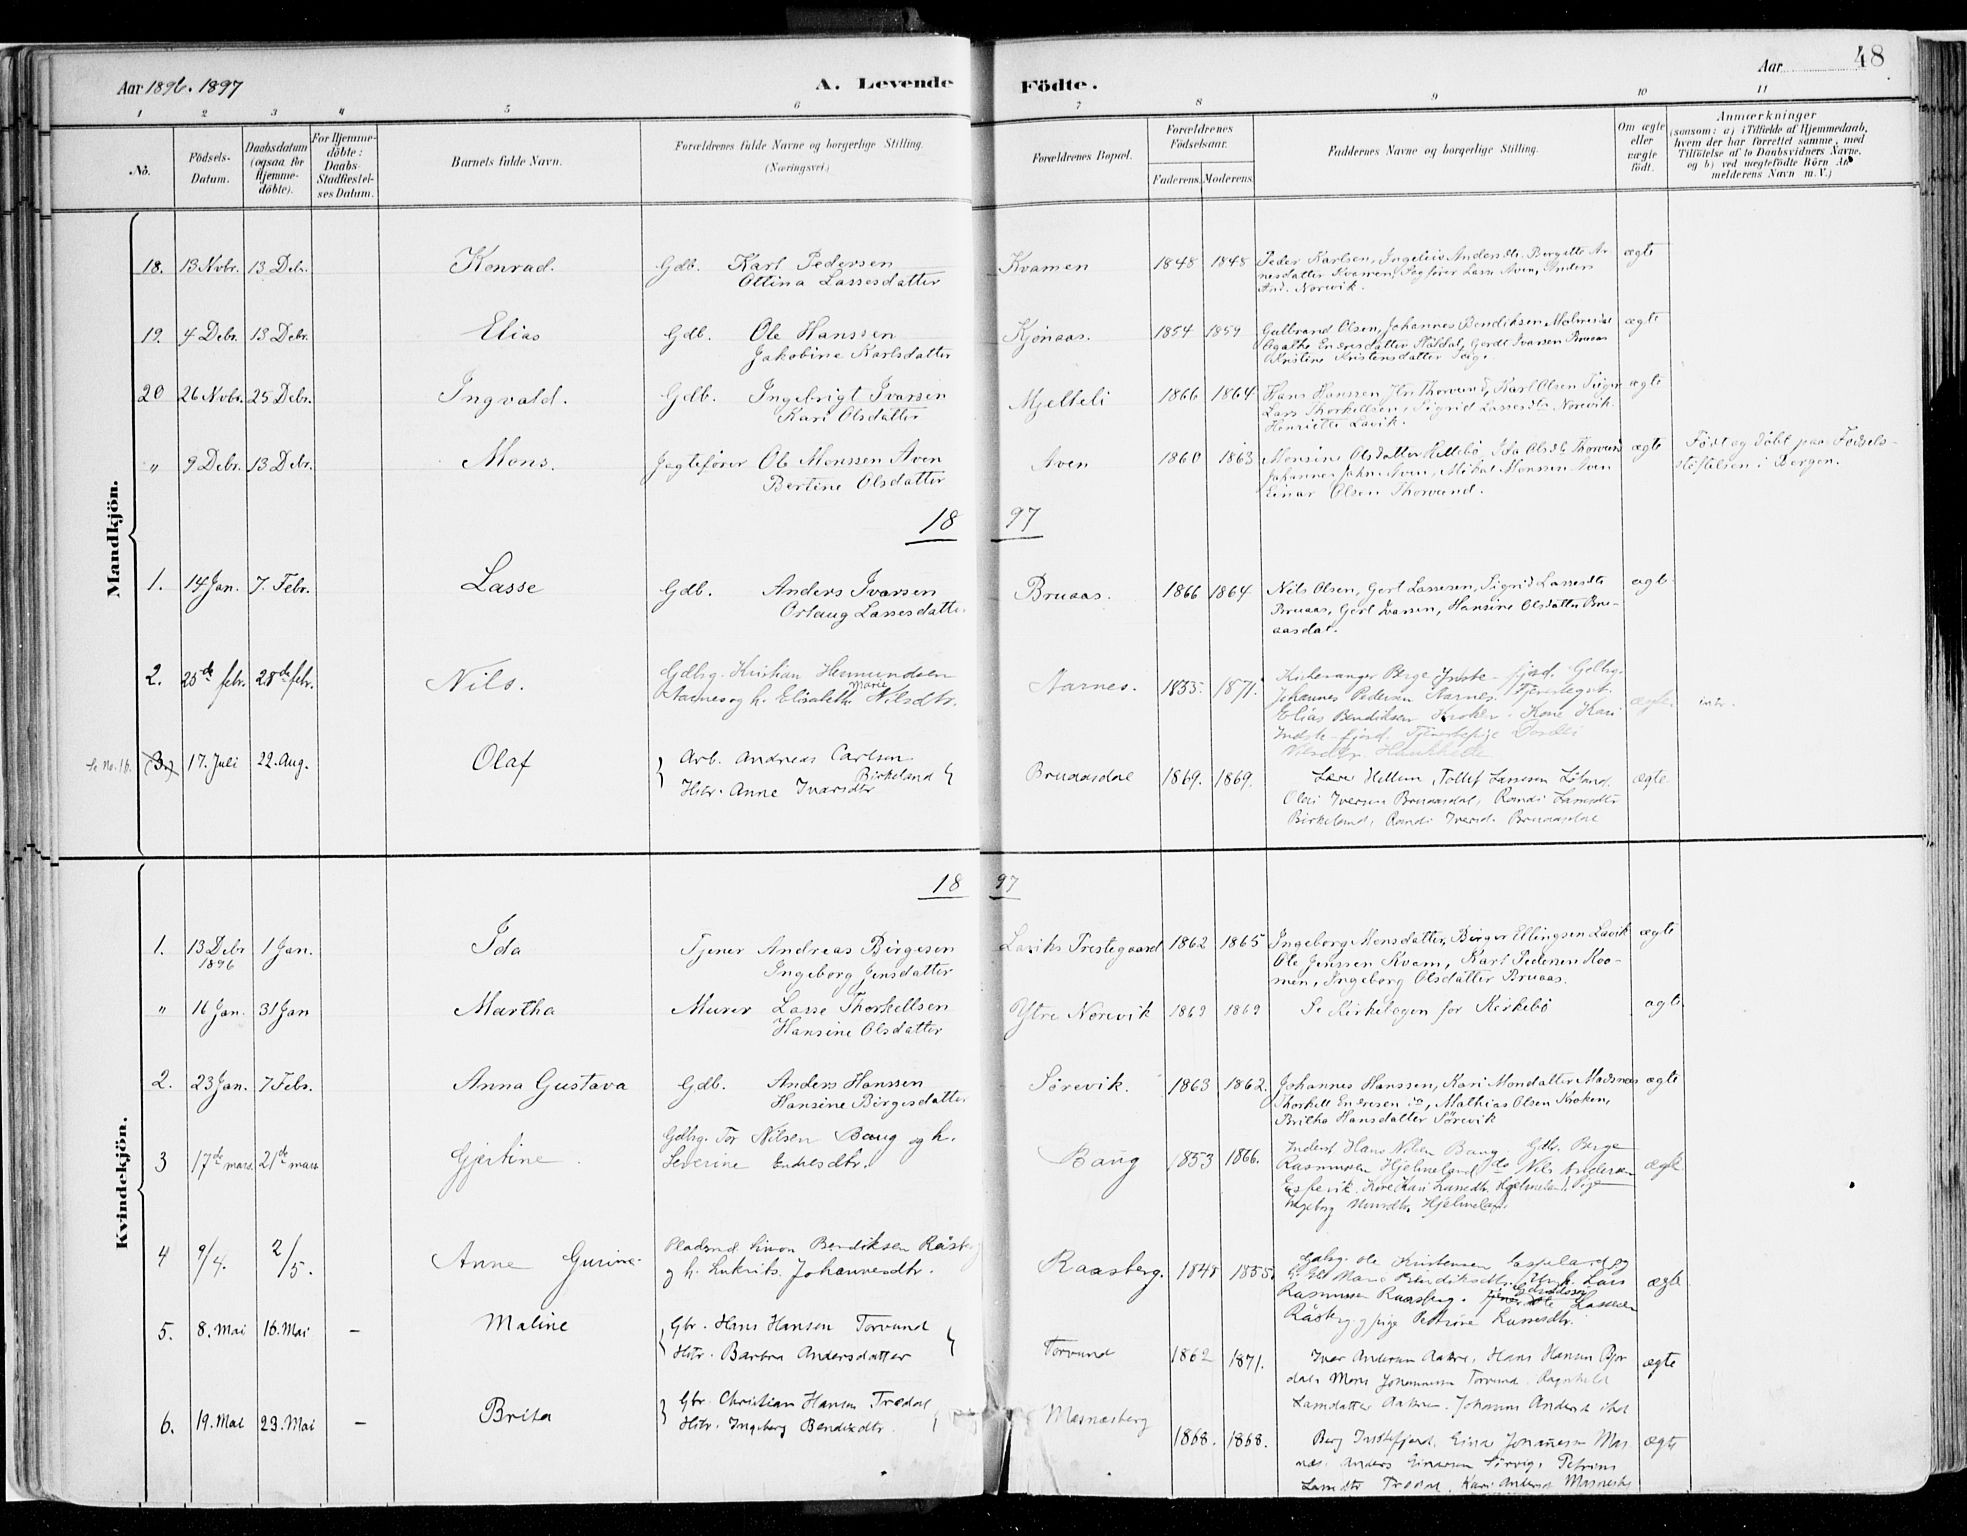 48
Aar 1896. 1897
A. Levende Födte.
Aar
1 2 3 4 5 6 7 8 9 10 11
No.
Födsels-Datum.
Daabsdatum (ogsaa for Hjemmedöbte).
For Hjemmedöbte: Daabs-Stadfæstelses Datum.
Barnets fulde Navn.
Forældrenes fulde Navne og borgerlige Stilling. (Næringsvei.)
Forældrenes Bopæl.
Forældrenes Födselsaar.
Faderens. Moderens.
Faddernes Navne og borgerlige Stilling.
Om ægte eller uægte födt.
Anmærkninger
(saasom: a) i Tilfælde af Hjemmedaab, hvem der har forrettet samme, med Tilföielse af to Daabsvidners Navne, og b) ved uægtefödte Börn Anmelderens Navn m. V.)
Mandkjön.
18. 13 Novbr. 13 Debr. Konrad. Gdb. Karl Pedersen Kvamen 1848 1848 Peder Karlsen, Ingeleiv Andersdtr. Bergitte Ar- ægte
Ottina Lassesdatter nesdatter Kvamen, Jegtfører Lasse Aven, Anders
And. Norevik.
19. 4 Debr. 13 Debr. Elias Gdb. Ole Hanssen Kjønaas. 1854 1859 Gulbrand Olsen, Johannes Bendiksen ægte
Jakobine Karlsdatter Agathe Endresdatter Gerdt Ivarsen Bruaas
Kristine Kristensdatter
20 26 Novbr. 25 Debr. Ingvald. Gdb. Ingebrigt Ivarsen Mjelteli 1866 1864 Hans Hanssen Thorvund, Karl Olsen ægte
Kari Olsdatter Lars Thorkellsen, Sigrid Lassesdtr Norevik.
Henriette Lavik.
" 9 Debr. 13 Debr. Mons. Jagtefører Ole Monssen Aven Aven 1860 1863 Monsine Olsdatter Hellebø, Ida Olsdtr Thorvund ægte Födt og döbt paa Födsels-
Bertine Olsdatter Johannes Aven, Mikal Monssen Aven stiftelsen i Bergen.
Einar Olsen Thorvund.
18 97
1. 14 Jan. 7. Febr. Lasse Gdb. Anders Ivarsen Bruaas. 1866 1864 Nils Olsen, Gert Lassesen, Sigrid Lassesdtr ægte
Ortaug Lassesdatter Bruaas, Gert Ivarsen, Hansine Olsdatter Bru-
aasdal.
2. 25de febr. 28de febr. Nils. Gdbrg. Kristian Hermundsen Aarnes. 1855. 1871. Kirkesanger Berge Indste-fjord. Gdbrg. ægte.
Aarnes og h. Elisabeth Marie Nilsdtr. Johannes Pedersen Aarnes. Tjenestegut
Elias Bendiksen Kroken. Kone Kari
Indste-fjord. Tjenestepige Dordei
Nilsdtr.
Se No. 16. (3.) 17. Juli 22. Aug. Olaf Arb. Andreas Carlsen Birkeland Bruaasdal 1869. 1869. Hellem, Tollef Lassesen ægte
Hstr. Anne Ivarsdtr Olai Iversen Bruaasdal, Randi Lassesdtr
Birkeland, Randi Iversd. Bruaasdal
Kvindekjön.
18 97
1. 13 Debr 1896 1 Jan. Ida Tjener Andreas Börgesen Laviks Prestegaard 1862 1865 Ingeborg Monsdatter, Börger Ellingsen Lavik ægte
Ingeborg Jensdatter Ole Jenssen Kvam, Karl Pedersen Kva-
men, Ingeborg Olsdatter Bruaas.
" 16 Jan. 31 Jan Martha Murer Lasse Thorkellsen Ytre Norevik 1869 1869 Se Kirkebogen for Kirkebö ægte
Hansine Olsdatter
2. 23 Jan. 7 Febr. Anna Gustava Gdb. Anders Hanssen Sörevik. 1863 1862. Johannes Hanssen, Kari Monsdatter Masnæs ægte
Hansine Börgesdatter Thorkell Endresen do, Mathias Olsen Kroken,
Britha Hansdatter Sörevik
3 17de mars. 21de mars Gjertine Gdbrg. Tor Nilsen Baug og h. Baug 1853 1866. Inderst Hans Nilsen Baug Gdbr. Berge ægte
Severine Endresdtr. Rasmussen Hjelmeland do Nils Andersen
Espevik. Kone Kari Lassedtr. Hjelmeland. Pige
Ingeborg Hjelmeland.
4 9/4. 2/5. Anne Gurine Pladsmd. Simon Bendiksen Råsberg Raasberg. 1848 1855. Gdbrg. Ole Kristensen ægte
og h. Johannesdtr. Marie Bendiksdtr. Lars
Rasmussen Raasberg. Lassesen
Råsberg. pige Petrine Lassesdtr.
5. 8. Mai 16. Mai – Maline Gbr. Hans Hansen Torvund Torvund 1862 1871. Ivar Andersen Aakre, Hans Hansen Bjor ægte
Hstr. Barbra Andersdatter dal, Mons Johannessen Torvund. Ragnhild
Aakre. Johanne Andersd ibid
6. 19. Mai 23. Mai – Brita Gbr. Christian Hansen Tredal Masnæsberg 1868. 1868. Berg Instefjord. Johannessen Mas ægte
Hstr. Ingeborg Bendixdtr. næs. Anders Einarsen Sörvig, Petrine
Tredal. Kari Andersd Masnesb